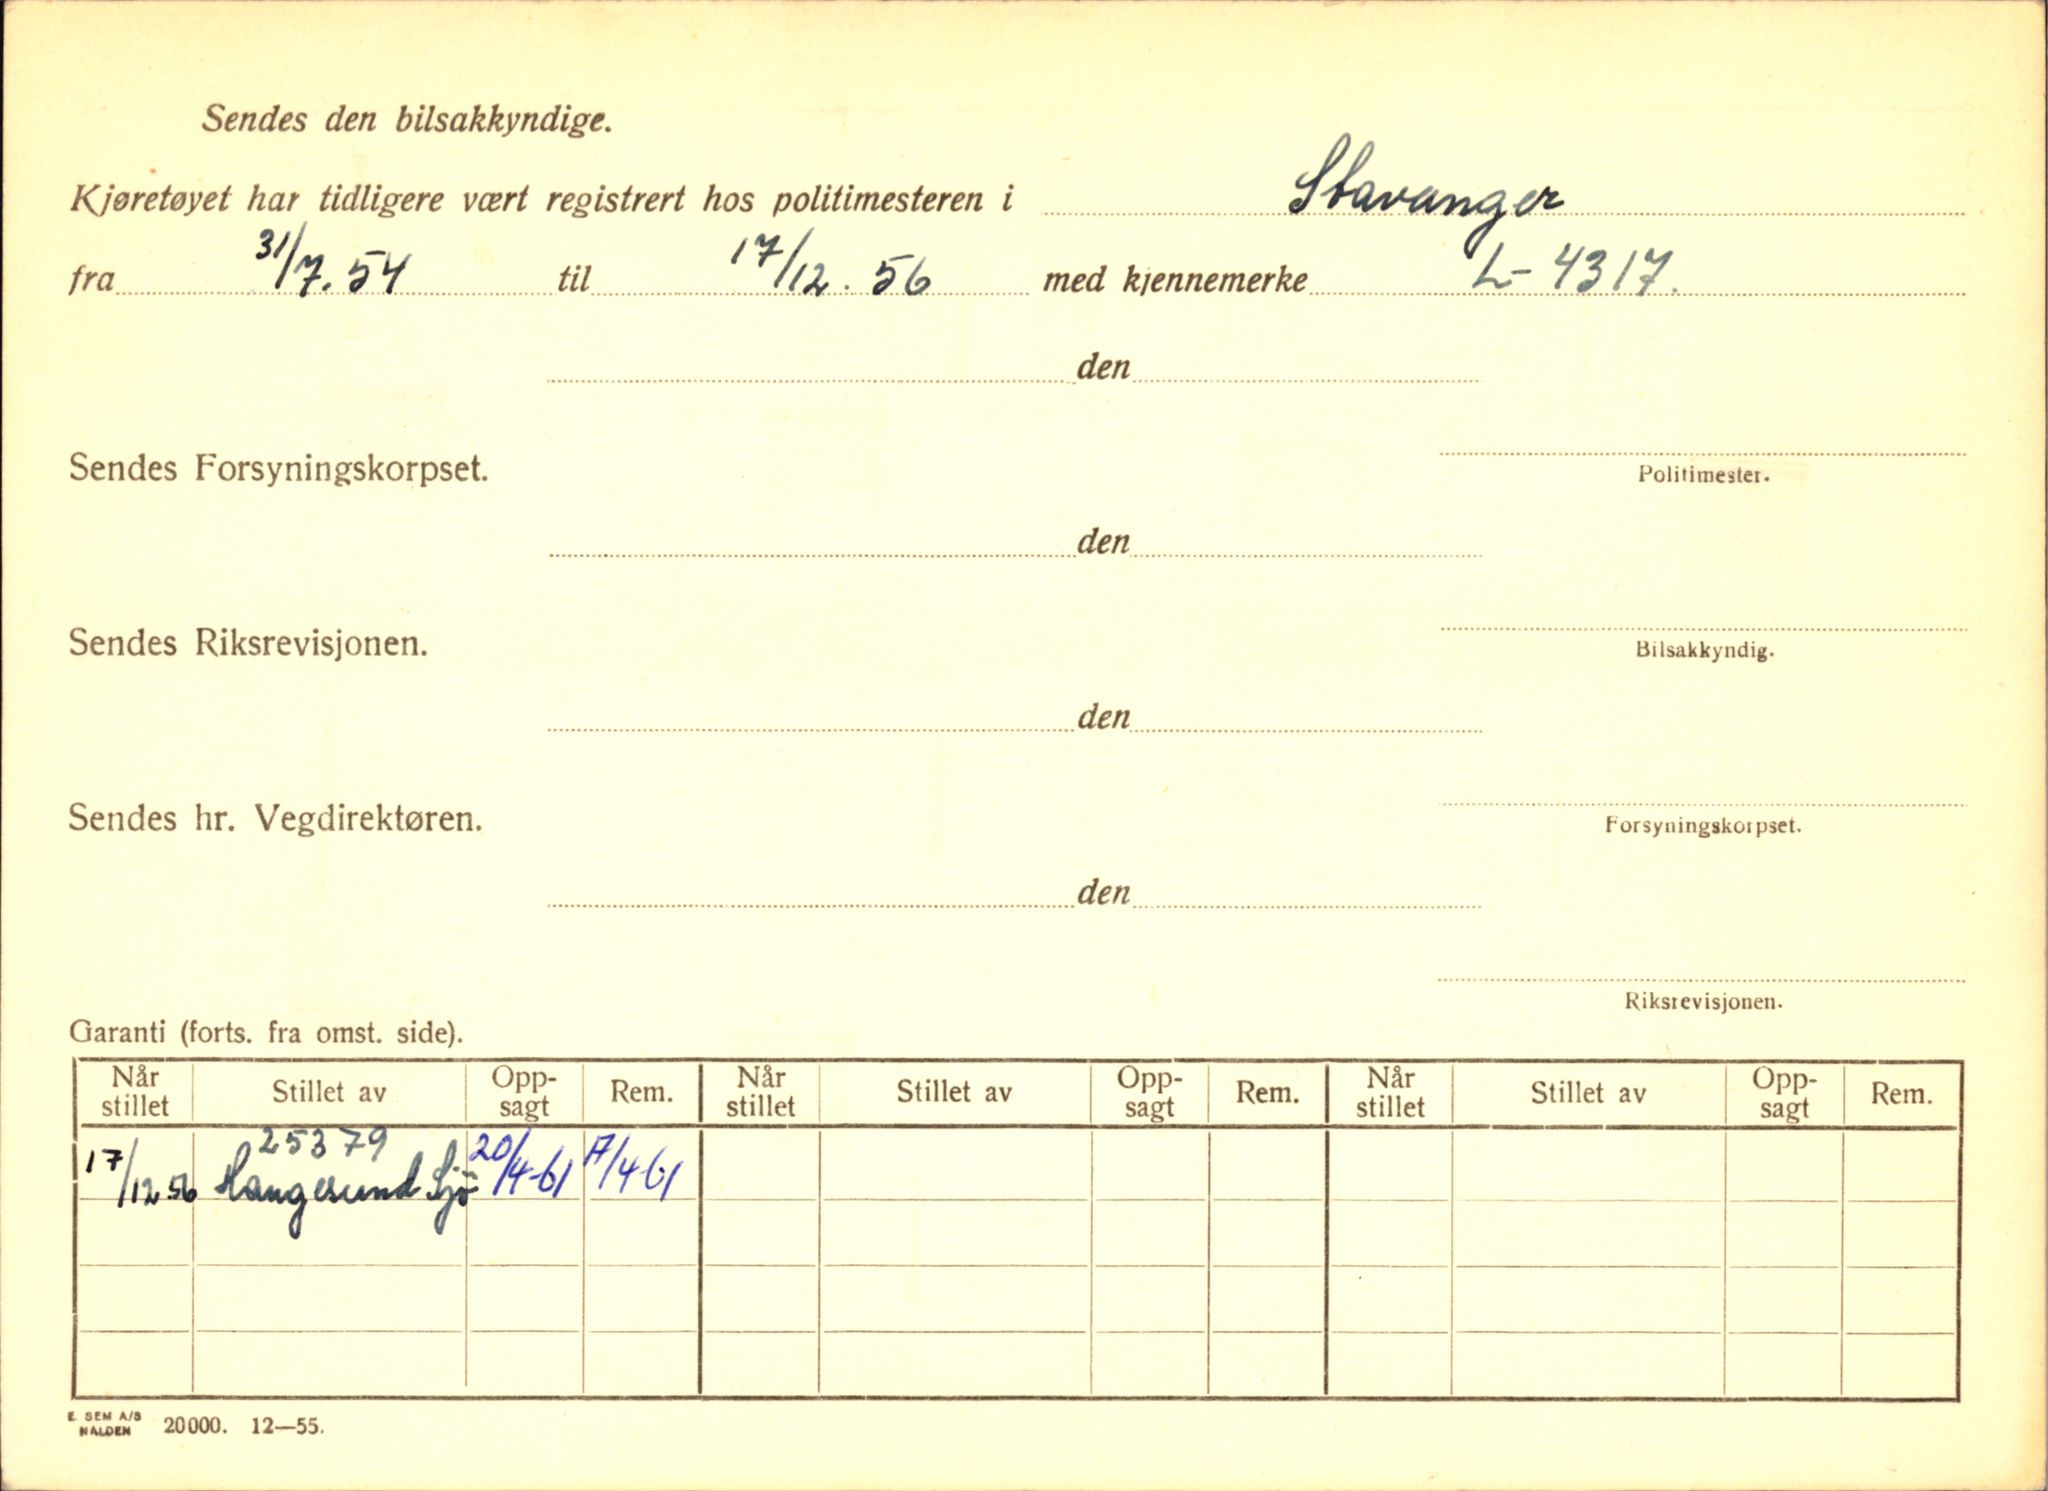 Sendes den bilsakkyndige.
Kjøretøyet har tidligere vært registrert hos politimesteren i Stavanger
fra 31/7.54 til 17/12.56 med kjennemerke L-4317.
den
Sendes Forsyningskorpset.
Politimester.
den
Sendes Riksrevisjonen.
Bilsakkyndig.
den
Sendes hr. Vegdirektøren.
Forsyningskorpset.
den
Riksrevisjonen.
Garanti (forts. fra omst. side).
Når stillet Stillet av Opp-sagt Rem. Når stillet Stillet av Opp-sagt Rem. Når stillet Stillet av Opp-sagt Rem.
25379
17/12 56 Haugesund Sjö 20/4-61 17/4-61
E. SEM A/S
HALDEN 20000. 12—55.